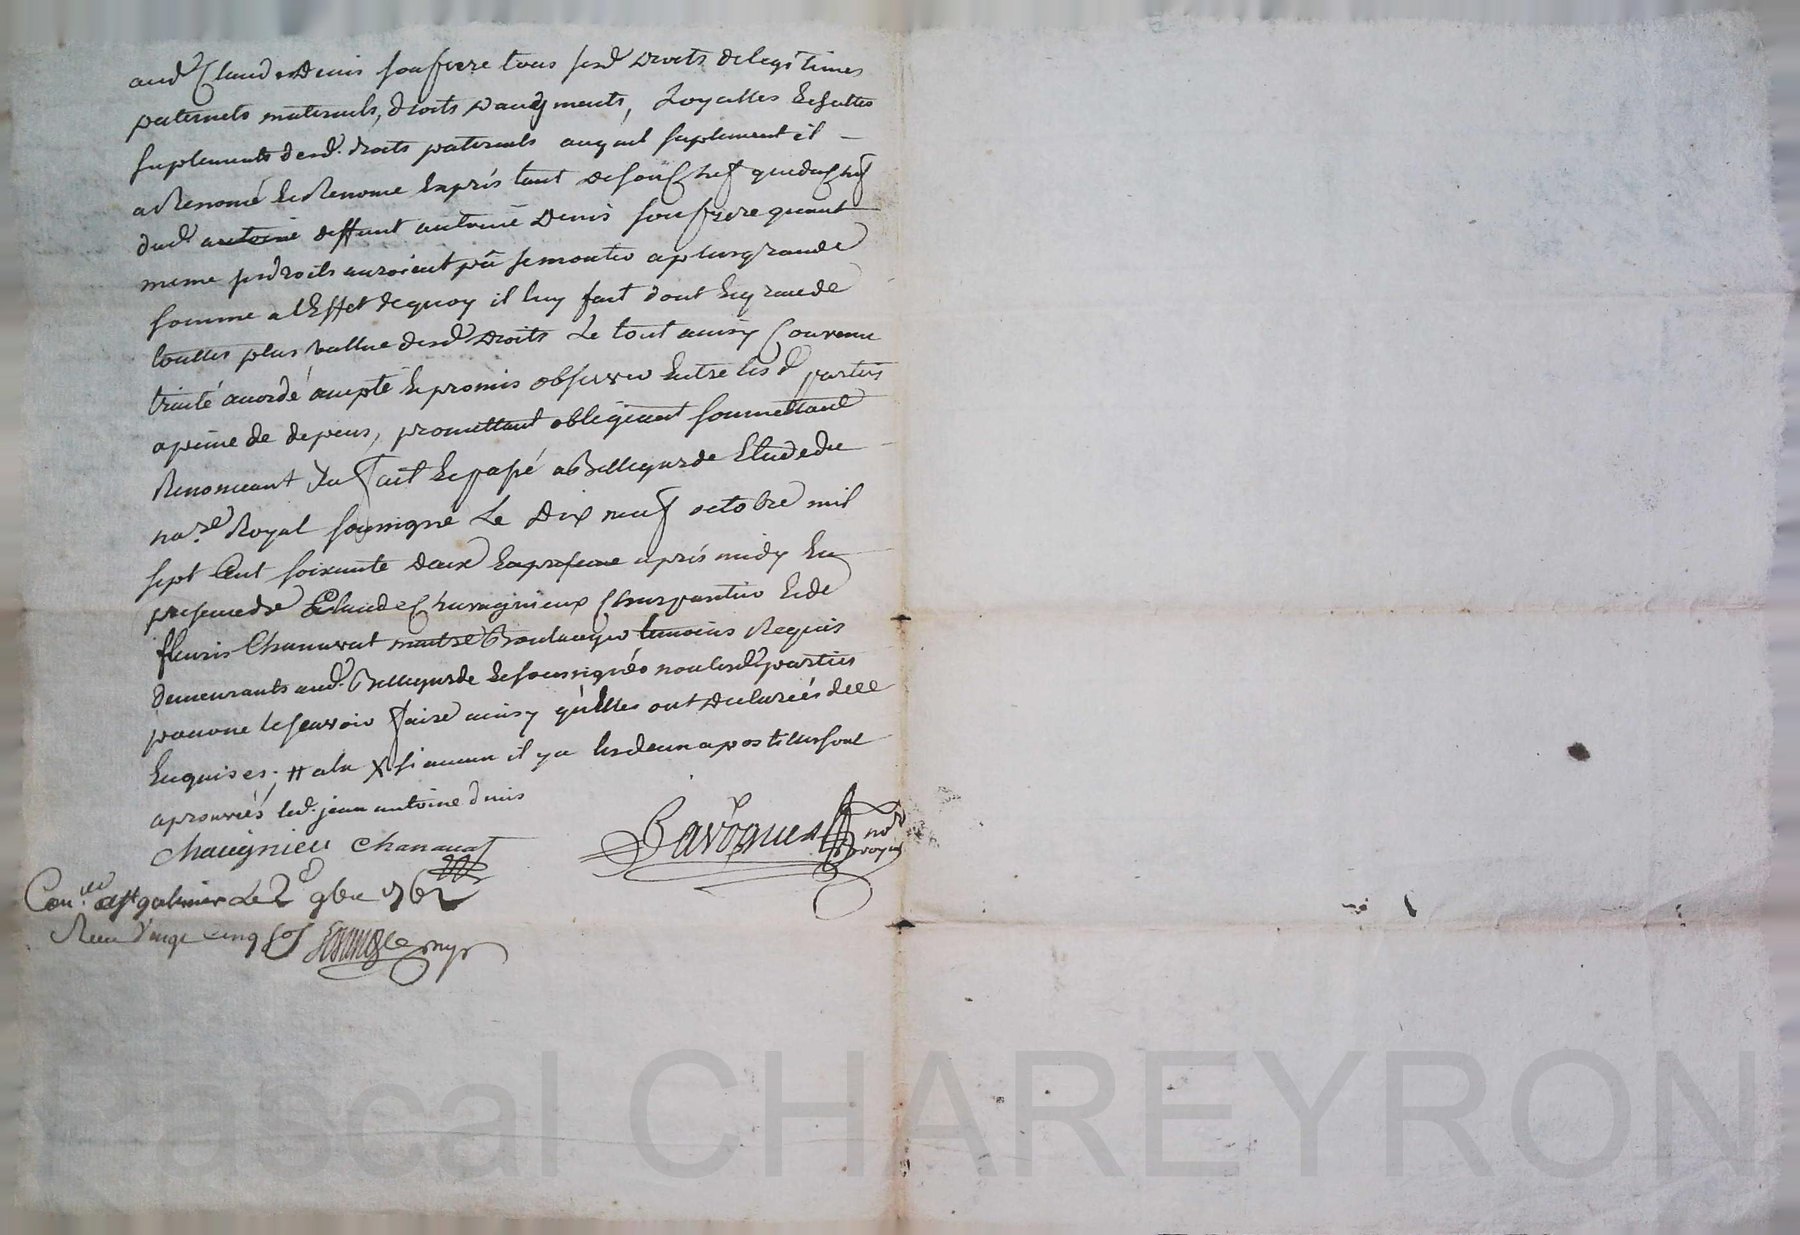 aud. Claude Denis son frere tous sesd. Droits de legitimes
paternels maternels, droits d'augments, Loyalles Ee faittes
suplements desd. droits paternels auquel suplement il
a Renoncé Ee Renonce Exprés tant de son chef que du chef
dud. antoine deffunt antoine Denis son frere quant
meme sesdroits auroient pû se monter a plus grande
somme a l'Effet de quoy il luy fait dont En grande
touttes plus vallue desd. Droits Le tout ainsy Convenu
traité acordé accepté Ee promis observer Entre lesd. parties
a peine de depens, promettant obligeant soumettant
Renonceant &a fait Ee passé a Bellegarde Etude du
no.re Royal soussigné Le Dix neuf octobre mil
sept Cent soixante deux apres midy En
presence de Claude Charpentier Ee de
fleuris Chanavat maitre Boulanger temoins Requis
demeurants aud. Bellegarde Ee soussignés non lesd. parties
pour ne le scavoir faire ainsy qu'Elles ont declarées de ce
Enquises; # alu X si aucun il y a les deux apostilles sont
aprouvées led. jean antoine denis
Chavagnieu Chanavat
Bavognes nore royal
Con.lé a St galmier Le 2e 9bre 1762
Receu cinq sols
Pascal CHAREYRON